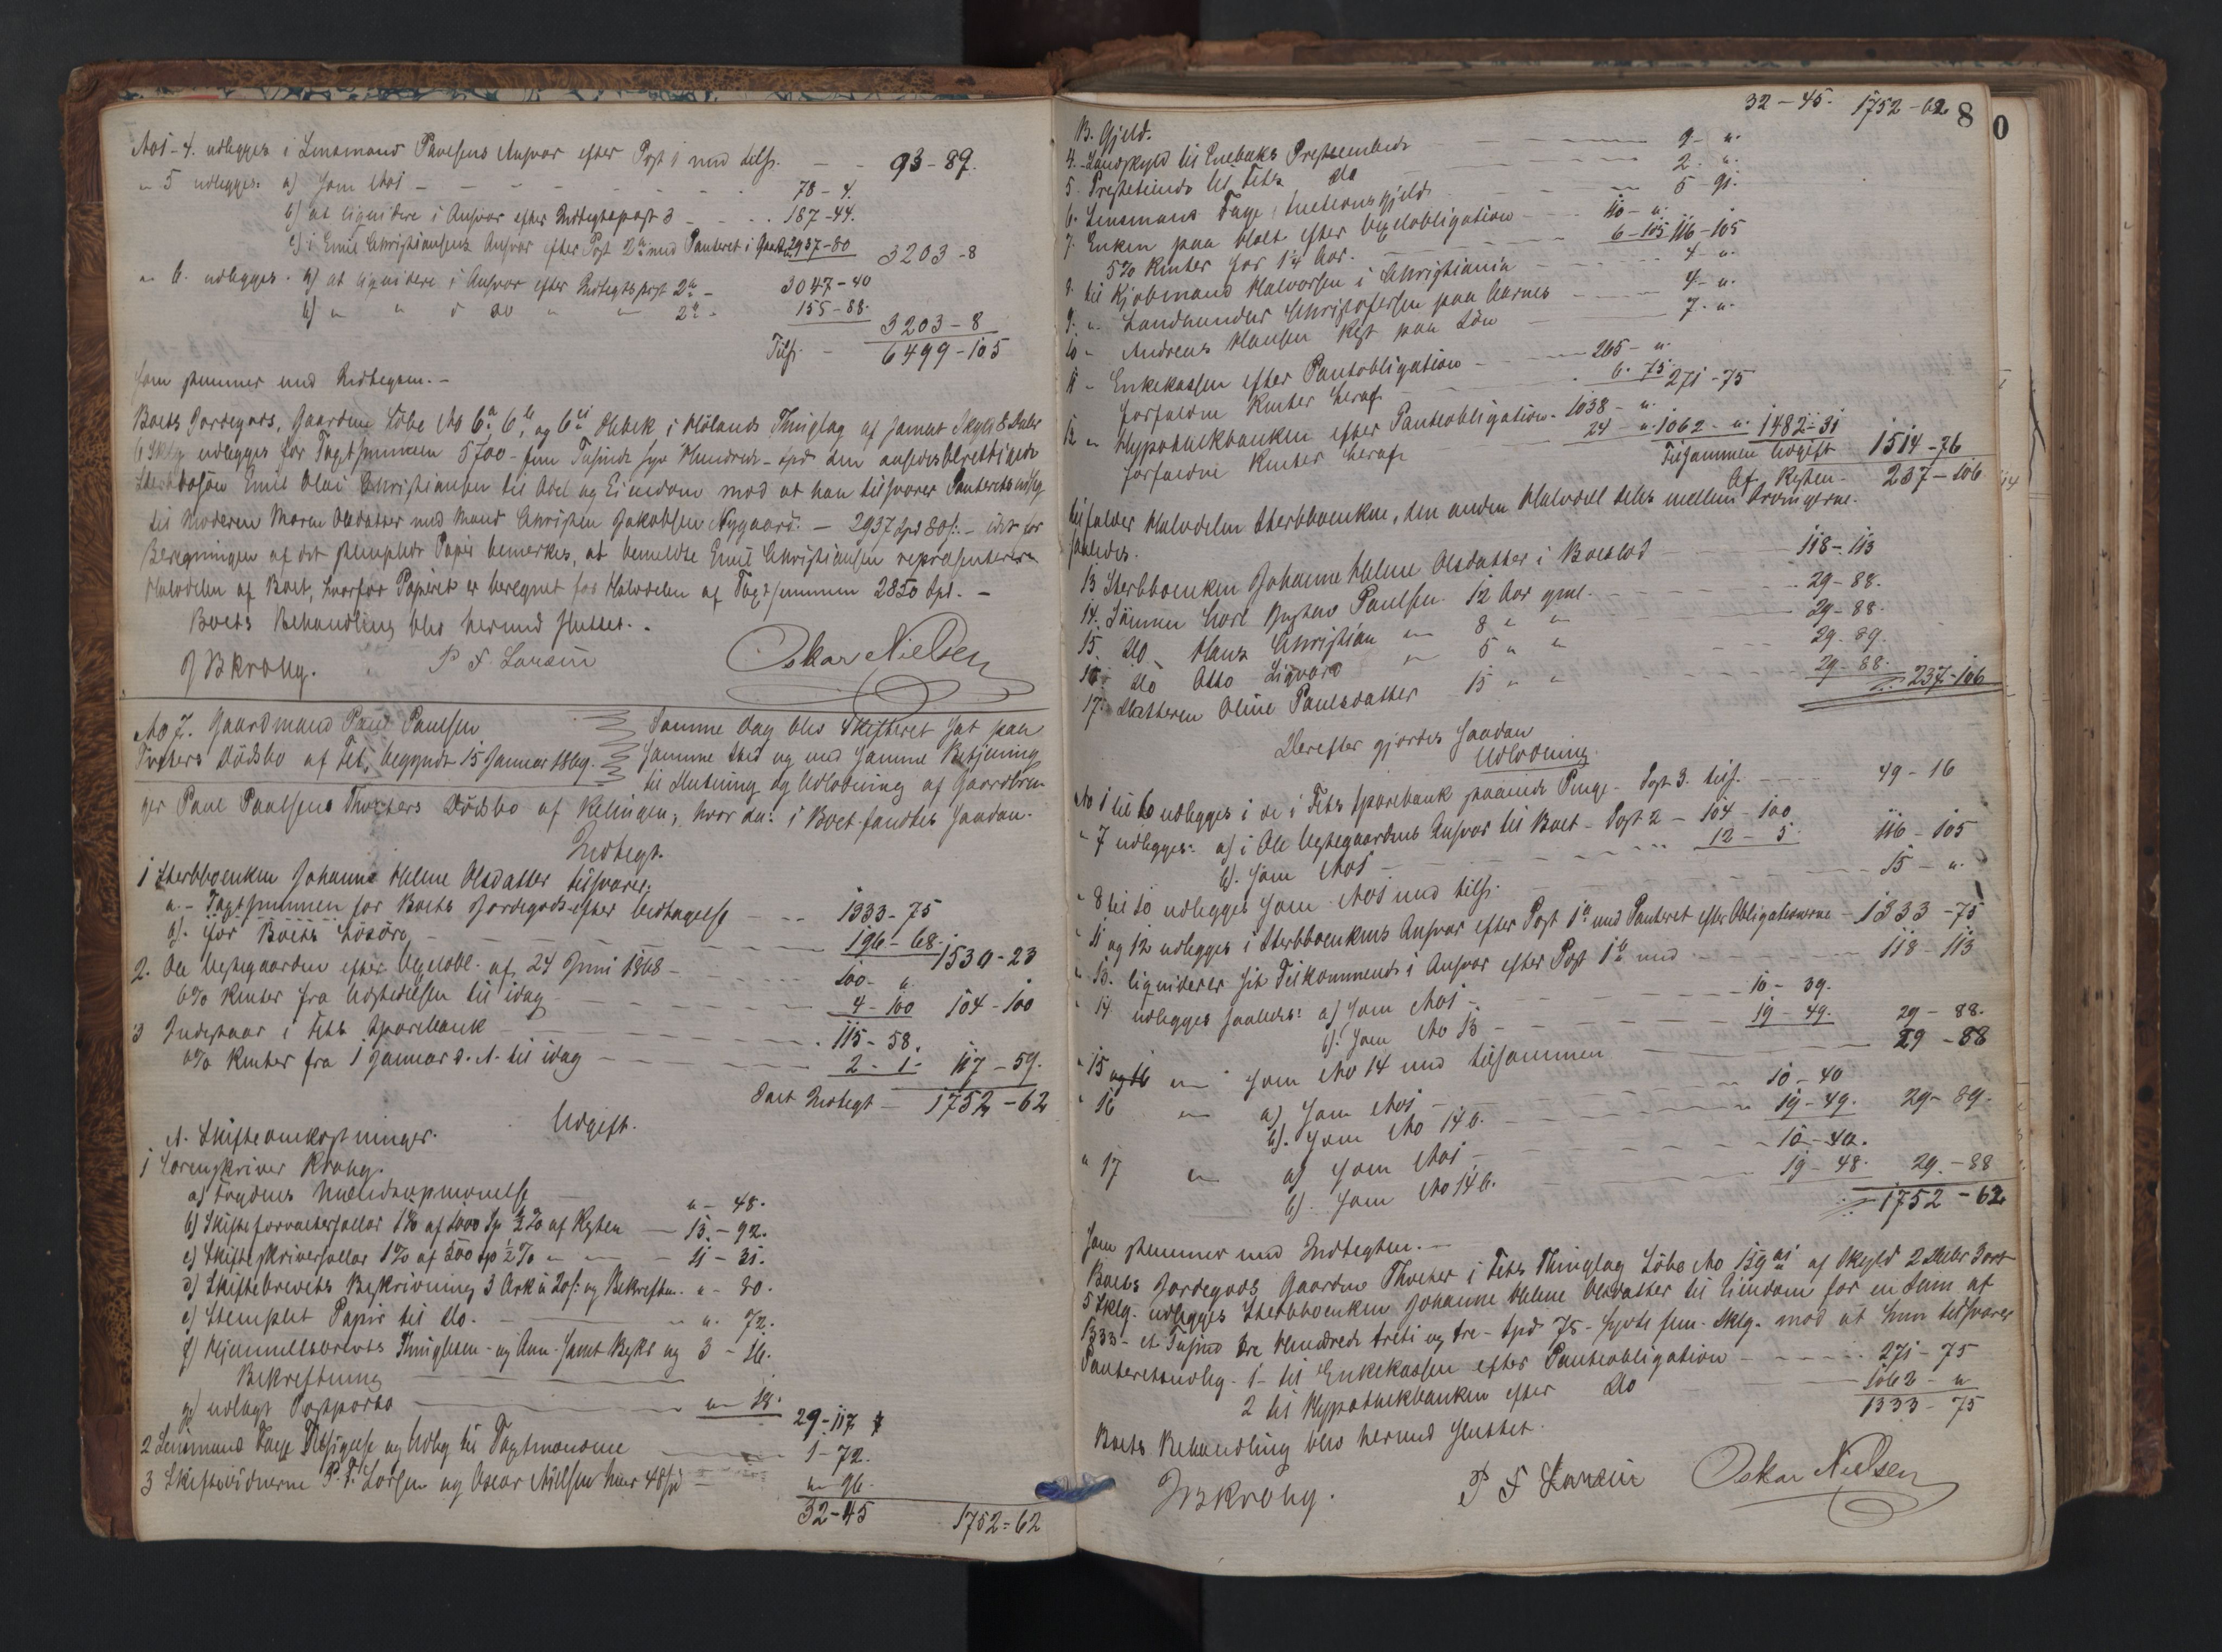 No 1-4. udlægges i Lensmand Paulsens Ansvar efter Post 1 med tils. - - 93-89.
" 5 udlægges: a) som No 1 - - - 78-4.
b) at liqvidere i Ansvar efter Indtægtspost 3 - - 187-44.
c) i Emil Christiansens Ansvar efter Post 2a med Panteret i Gaarden 2937-80 3203-8
" 6. udlægges. a) at liqvidere i Ansvar efter Indtægtspost 2a - 3047-40
b) " " i do " " 2 - 155-88. 3203-8
Tils. - 6499-105
som stemmer med Indtægten. -
Boets Jordegods, Gaarden Löbe No 6a, 6b, og 6 Hebek i Hölands Thinglag af samlet Skyld 8 Daler
6 Sklg udlægges for Taxtsummen 5700 - fem Tusinde syv Hundrede - Spd den aasædesberettigede
Sterbbosön Emil Olai Christiansen til Odel og Eiendom mod at han tilsvarer Panteretsudlæg
til Moderen Maren Olsdatter med Mand Christen Jakobsen Nygaard. - 2937 Spd 80 s. - idet for
Beregningen af det stemplede Papir bemerkes, at bemeldte Emil Christiansen repræsenterer
Halvdelen af Boet, hvorfor Papiret er beregnet for Halvdelen af Taxtsummen 2850 Spd. -
Boets Behandling blev hermed sluttet. -
J B Krohg. P F Larsen Oskar Nielsen
No 7. Gaardmand Paul Paulsen
Tvethers Dödsbo af Fet, begyndt 15 Januar 1869.
Samme Dag blev Skifteret sat paa
samme Sted og med samme Betjening
til Slutning og Udlodning af Gaardbru-
ger Paul Paulsens Thvethers Dödsbo af Relingen, hvor da: i Boet fandtes saadan.
Indtægt.
1 Sterbboenken Johanne Helene Olsdatter tilsvarer:
a. - Taxtsummen for Boets Jordegods efter Vedtagelse - - 1333-75
b). för Boets Lösöre - - - 196-68. 1530-23
2. Ole Vestgaarden efter Vexelobl. af 24 Juni 1868 - 100- "
6% Renter fra Udstedelsen til idag - - - 4-100 104-100
3 Indestaar i Fets Sparebank - - - 115-58.
6% Renter fra 1 Januar d. A. til idag - - - 2-1- 117-59.
Boets Indtægt - 1752-62
Udgift.
A. Skifteomkostninger.
1 Sorenskriver Krohg.
a) Fogdens Mændsopnævnelse " - 48.
b) Skifteforvaltersallar 1% af 1000 Sp ½% af Resten - 13-92.
c) Skifteskriversallar 1% af 500 Sp ½% " - 11-31.
d) Skiftebrevets Beskrivning 3 Ark à 20 s. og Bekræften. " - 80.
e) Stemplet Papir til do. - - " " 72.
f) Hjemmelsbrevets Thinglæsn- og Ann. samt Beskr og 3-16.
Bekræftning
g) udlagt Postporto " - 18. 29-117
2 Lensmand Faye Tilsigelse og Udlæg til Taxtmændene 1-72.
3 Skiftevidnerne P. F. Larsen og Oscar Nielsen hver 48 s. - " - 96.
32-45 1752-62
32-45. 1752-62 80
B. Gjeld.
4. Landskyld til Enebaks Prestembede - - 9- ".
5. Prestetiende til Fets do - - 2. ".
6. Lensmand Faye, Auctionsgjeld. - - 5-91.
7. Enken paa Holt efter Vexelobligation - - 110- ".
5% Renter for 1¼ Aar. - - 6-105 116-105
8. til Kjöbmand Halvorsen i Christiania - - 4- ".
9. " Landhandler Christofersen paa Aarnes - - 4- ".
10 " Andreas Hansen Rest paa Lön - - 7. ".
11 " Enkekassen efter Panteobligation - - 265- ".
forfaldne Renter heraf - 6. 75 271-75
12 " Hypothekbanken efter Panteobligation - 1038- ".
forfaldne Renter heraf - 24- " 1062- " 1482-31
Tilsammen Udgift 1514-76
Af Resten - 237-106
tilfalder Halvdelen Sterbboenken, den anden Halvdel deles mellem Arvingerne
saaledes.
13 Sterbboenken Johanne Helene Olsdatter i Boeslod - - 118-113
14. Sönnen Carl Gustav Paulsen 12 Aar gml. - - 29-88.
15. do Hans Christian " 8 " " - - 29-88.
16 do Otto Sigvard " 5 " " - - 29-89.
17. Datteren Oline Paulsdatter 15 " " - - 29-88. 237-106
Derefter gjordes saadan
Udlodning.
No 1 til 6 udlægges i de i Fets Sparebank staaende Penge - Post 3. tils. - - 49-16
" 7 udlægges: a) i Ole Vestgaardens Ansvar til Boet - Post 2 - 104-100
b). som No 1 - - 12-5. 116-105
" 8 til 10 udlægges som No 1 med tils. - - 15- ".
" 11 og 12 udlægges i Sterbboenkens Ansvar efter Post 1a med Panteret efter Obligationerne - 1333-75
" 13. liqviderer sit Tilkommende i Ansvar efter Post 1b med - - 118-113
" 14 udlægges saaledes: a) som No 1 - - 10-39.
b). som No 13 - - 19-49. 29-88.
" 15 " som No 14 med tilsammen - - 29-88
" 16 " a) som No 1 - - 10-40
b). som No 14 b. - - 19-49. 29-89.
" 17 " a) som No 1 - - 10-40.
b). som No 14 b. - - 19-48. 29.-88
1752-62
som stemmer med Indtægten. -
Boets Jordegods Gaarden Thveter i Fets Thinglag Löbe No 159 af Skyld 2 Daler 3 ort
5 Sklg. udlægges Sterbboenken Johanne Helene Olsdatter til Eiendom for en Sum af
1333 - et Tusind tre Hundrede treti og tre - Spd 75 - sytti fem - Sklg. mod at hun tilsvarer
Panteretsudlæg - 1 - til Enkekassen efter Panteobligation - - 271-75
2 til Hypothekbanken efter do - 1062- "
1333-75
Boets Behandling blev hermed sluttet.
J B Krohg. P F Larsen Oskar Nielsen